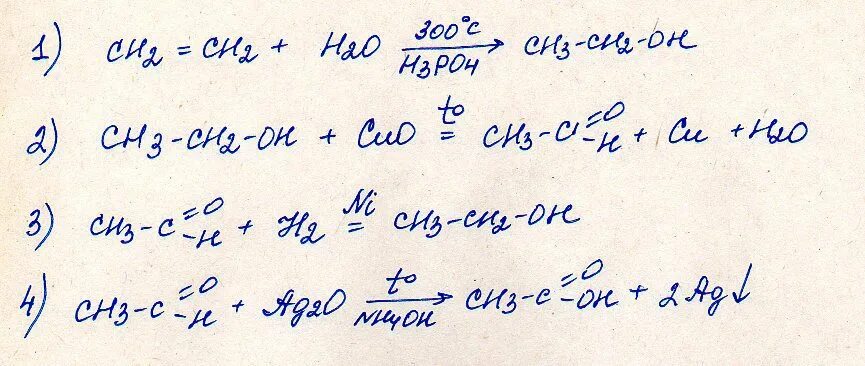 1) CH2 = CH2 + H2O 300°C H3PO4 → CH3-CH2-OH
2) CH3-CH2-OH + CuO t° = CH3-C =O -H + Cu + H2O
3) CH3-C =O -H + H2 Ni = CH3-CH2-OH
4) CH3-C =O -H + Ag2O t° NH4OH → CH3-C =O -OH + 2Ag↓